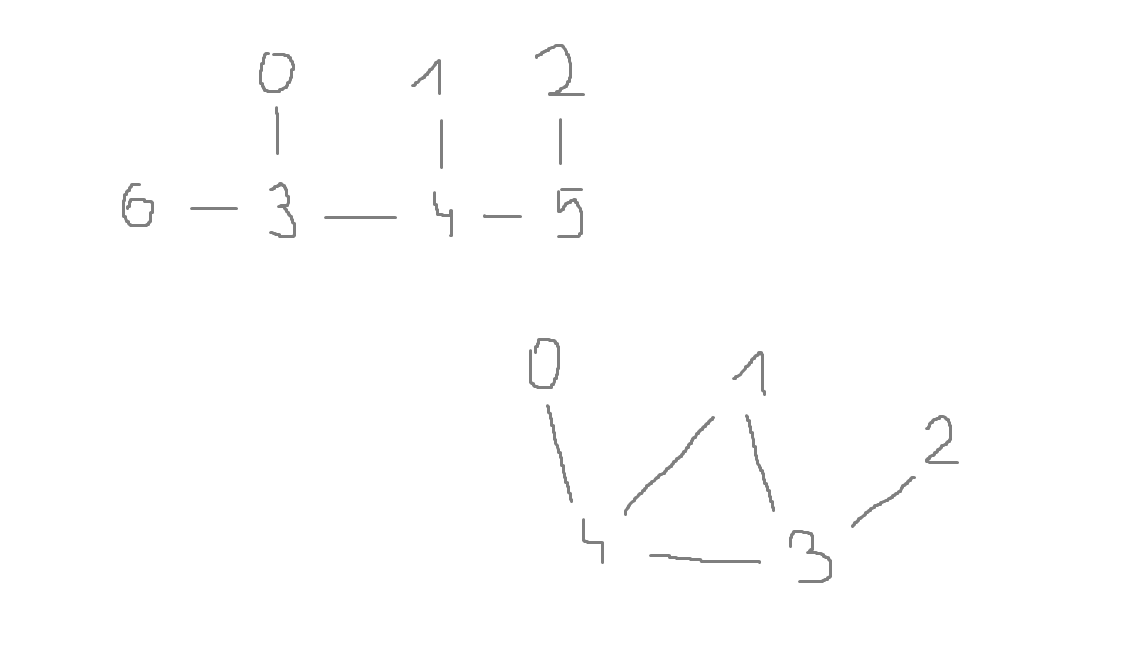 0 1 2
6 3 4 5
0 1
2
4 3